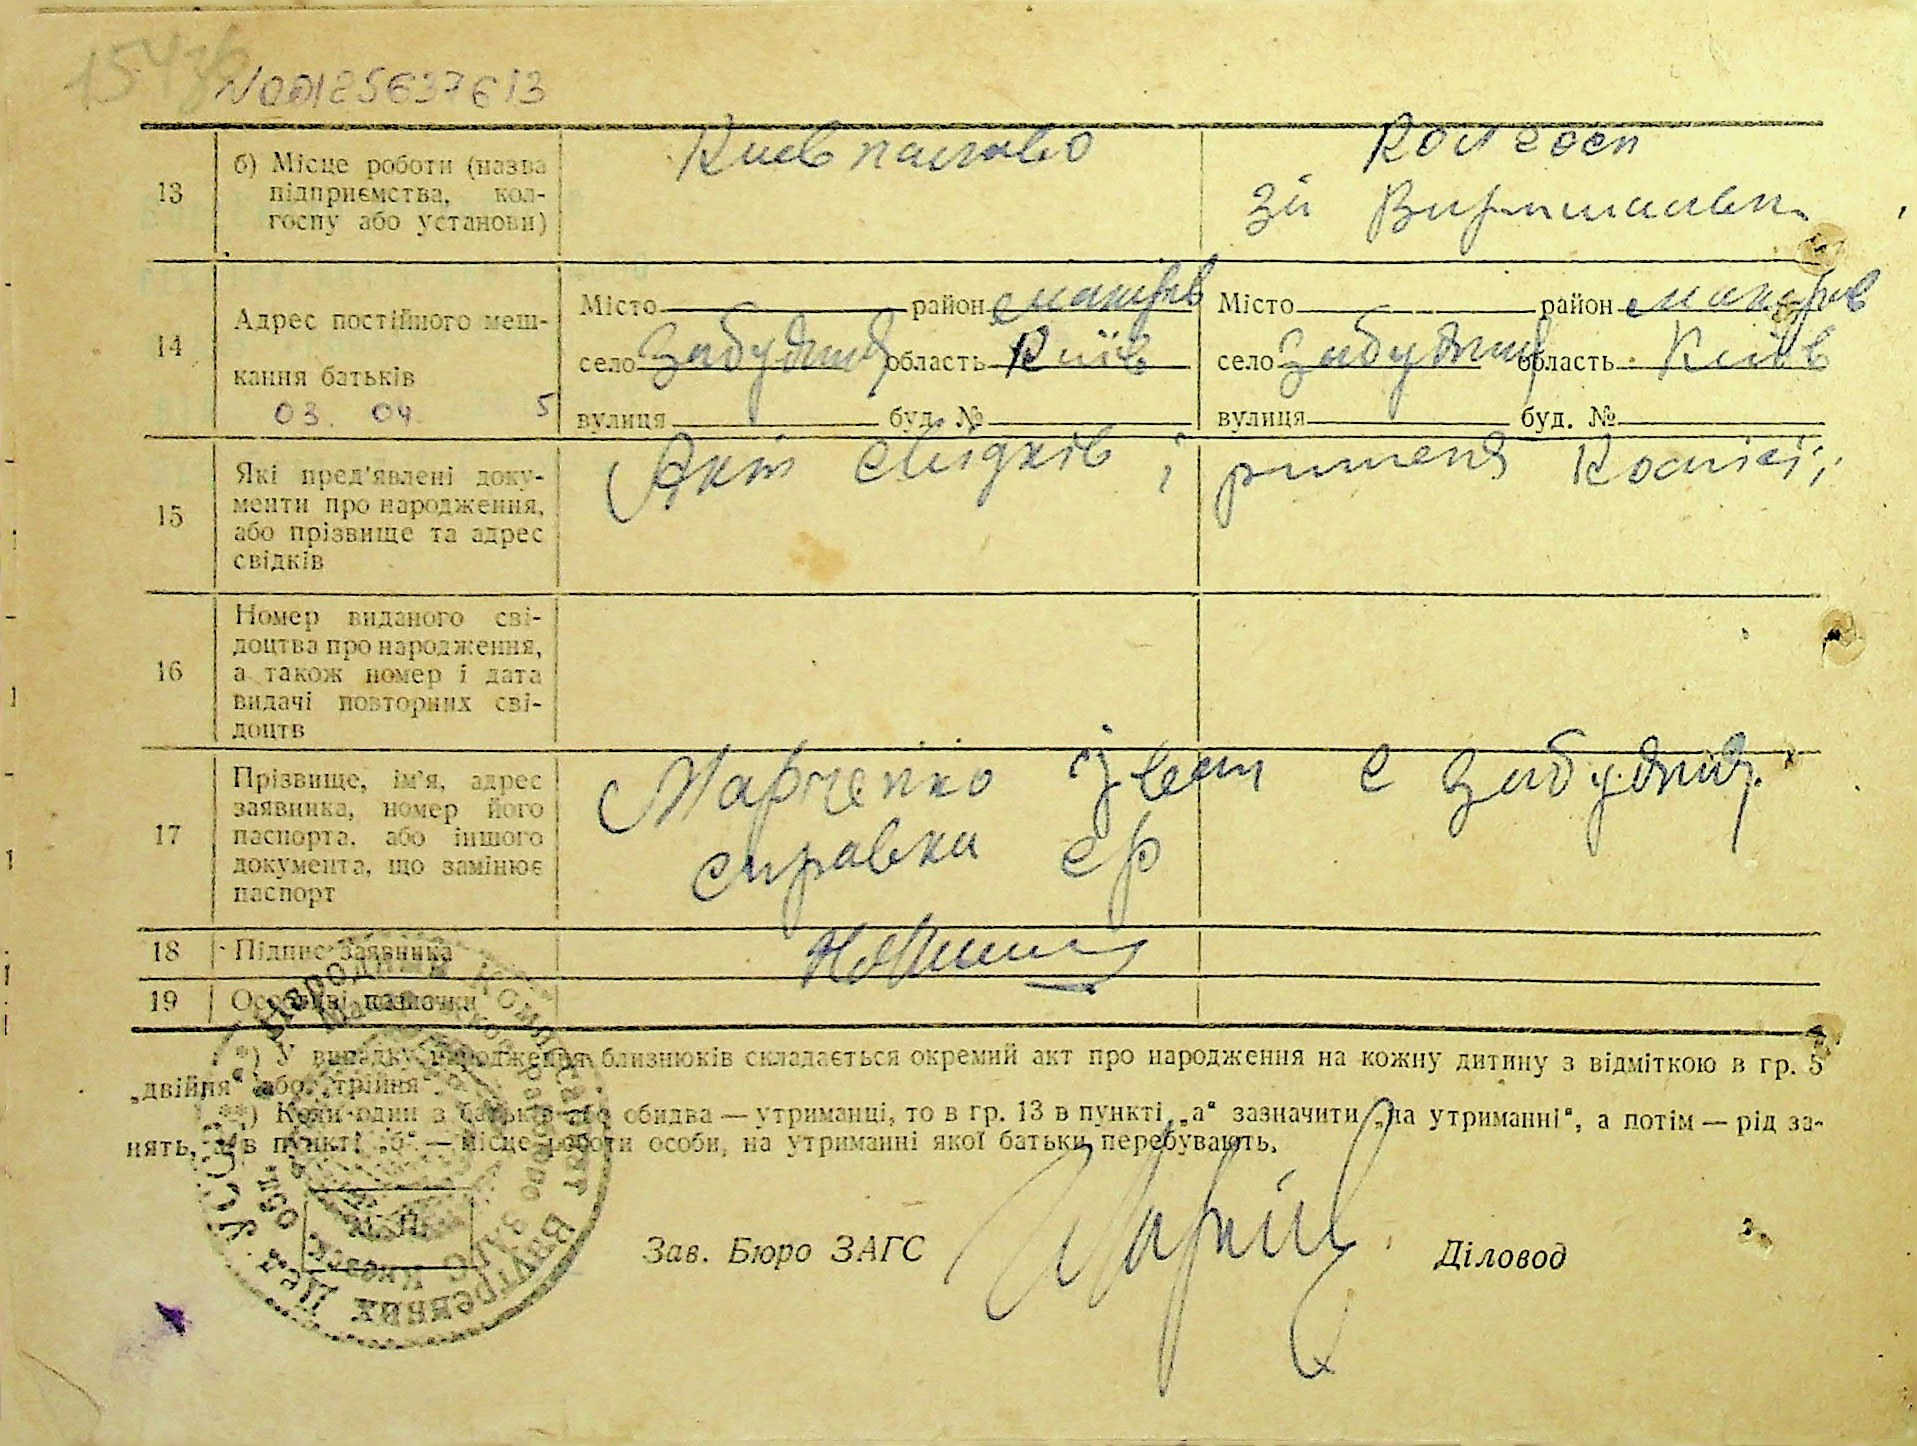 N00125637613
13
б) Місце роботи (назва
підприємства, кол-
госпу або установи)
Колгосп
14
Адрес постійного меш-
кання батьків
03. 04. 5
Місто район Макарів
село Забуяння область Київ
вулиця буд. №
Місто район Макарів
село Забуяння область Київ
вулиця буд. №
15
Які пред'явлені доку-
менти про народження,
або прізвище та адрес
свідків
Акт свідків і рішення Комісії
16
Номер виданого сві-
доцтва про народження,
а також номер і дата
видачі повторних сві-
доцтв
17
Прізвище, ім'я, адрес
заявника, номер його
паспорта, або іншого
документа, що замінює
паспорт
Марченко с Забуяння
справка ср
18
Підпис заявника
19
Особливі позначки
*) У випадку народження близнюків складається окремий акт про народження на кожну дитину з відміткою в гр. 5
„двійня“ або „трійня“.
**) Коли один з батьків або обидва — утриманці, то в гр. 13 в пункті „а“ зазначити „на утриманні“, а потім — рід за-
нять, а в пункті „б“ — місце роботи особи, на утриманні якої батьки перебувають.
М. П.
Зав. Бюро ЗАГС
Діловод
Народний Комісаріат Внутренних Дел УССР